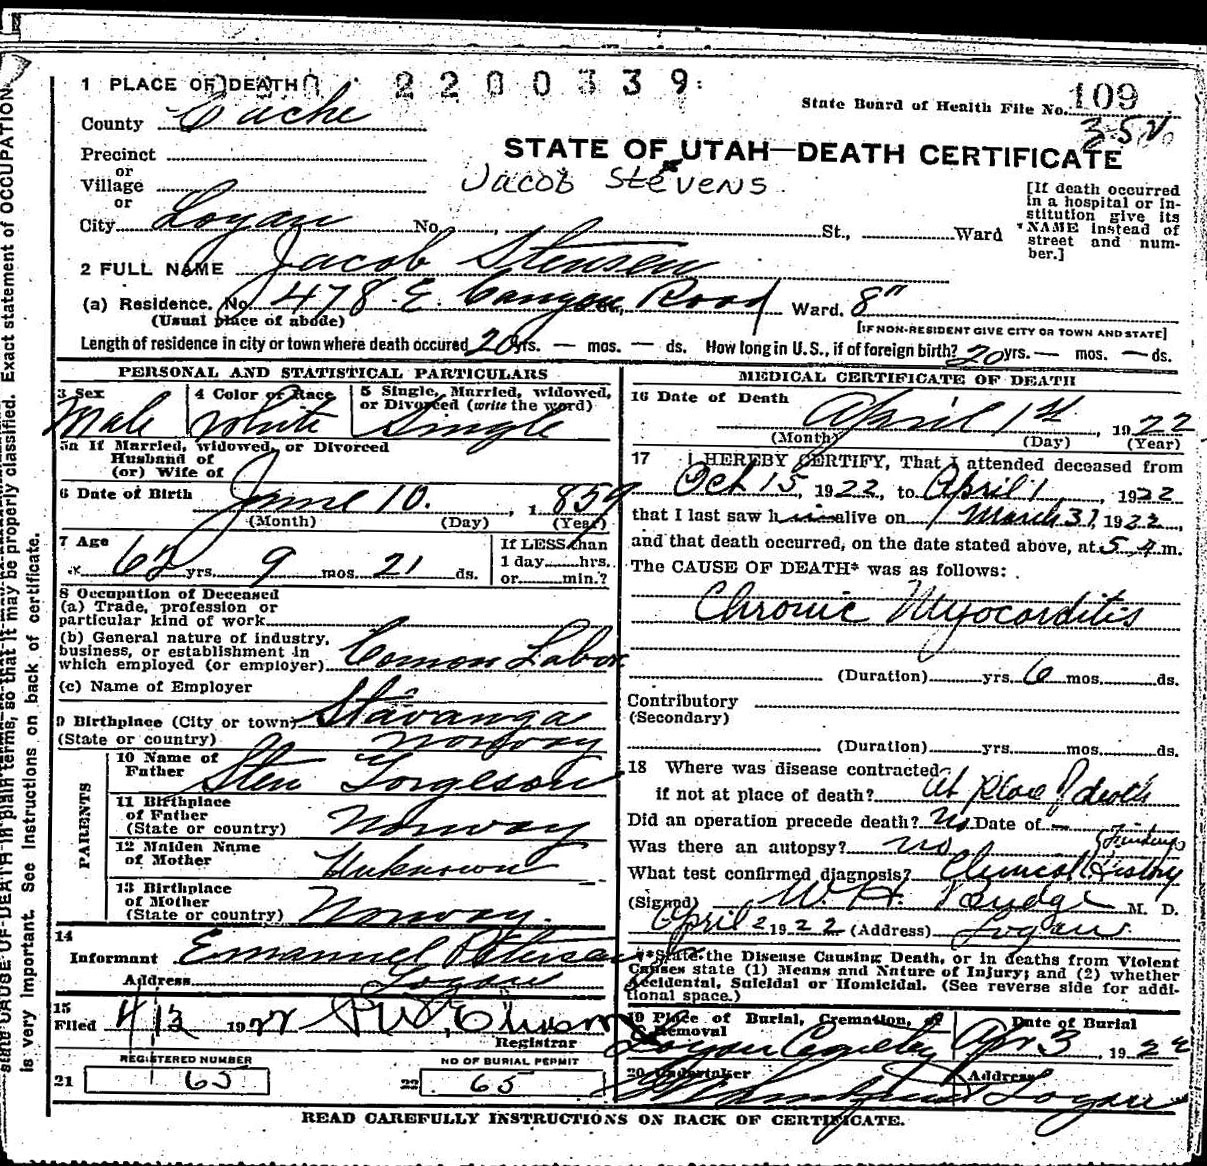 1 PLACE OF DEATH 2200339
State Board of Health File No. 109
County Cache
35
Precinct
STATE OF UTAH—DEATH CERTIFICATE
or
Village
Jacob Stevens
or
City Logan No. St., Ward
[If death occurred in a hospital or institution give its NAME instead of street and number.]
2 FULL NAME Jacob Stensen
(a) Residence. No. 478 E. Canyon Road St., Ward. 8"
(Usual place of abode)
[IF NON-RESIDENT GIVE CITY OR TOWN AND STATE]
Length of residence in city or town where death occured 20 yrs. — mos. — ds. How long in U.S., if of foreign birth? 20 yrs. — mos. — ds.
PERSONAL AND STATISTICAL PARTICULARS
3 Sex
Male
4 Color or Race
White
5 Single, Married, widowed, or Divorced (write the word)
Single
5a If Married, widowed, or Divorced
Husband of
(or) Wife of
6 Date of Birth June 10. , 1859
(Month) (Day) (Year)
7 Age
62 yrs. 9 mos. 21 ds.
If LESS than
1 day hrs.
or min.?
8 Occupation of Deceased
(a) Trade, profession or
particular kind of work
(b) General nature of industry,
business, or establishment in
which employed (or employer) Comon Labor
(c) Name of Employer
9 Birthplace (City or town) Stavanga
(State or country) Norway
PARENTS
10 Name of
Father Sten Torgeson
11 Birthplace
of Father
(State or country) Norway
12 Maiden Name
of Mother Unknown
13 Birthplace
of Mother
(State or country) Norway.
14
Informant Emanuel Petersen
Address Logan
15
Filed 4/3 1922
Registrar
REGISTERED NUMBER
21 65
NO OF BURIAL PERMIT
22 65
MEDICAL CERTIFICATE OF DEATH
16 Date of Death
April 1st , 1922
(Month) (Day) (Year)
17 I HEREBY CERTIFY, That I attended deceased from
Oct 15, 1922, to April 1, 1922
that I last saw him alive on March 31, 1922,
and that death occurred, on the date stated above, at 5 A m.
The CAUSE OF DEATH* was as follows:
Chronic Myocarditis
(Duration) yrs. 6 mos. ds.
Contributory
(Secondary)
(Duration) yrs. mos. ds.
18 Where was disease contracted
if not at place of death? At place of death
Did an operation precede death? No Date of —
Was there an autopsy? no
What test confirmed diagnosis? Clinical History
Findings
(Signed) W. H. M. D.
April 2 1922 (Address) Logan.
*State the Disease Causing Death, or in deaths from Violent
Causes state (1) Means and Nature of Injury; and (2) whether
Accidental, Suicidal or Homicidal. (See reverse side for addi-
tional space.)
19 Place of Burial, Cremation, or
Removal
Logan Cemetery
Date of Burial
Apr 3, 1922
20 Undertaker
Address
Logan
READ CAREFULLY INSTRUCTIONS ON BACK OF CERTIFICATE.
state CAUSE OF DEATH in plain terms, so that it may be properly classified. Exact statement of OCCUPATION
is very important. See Instructions on back of certificate.